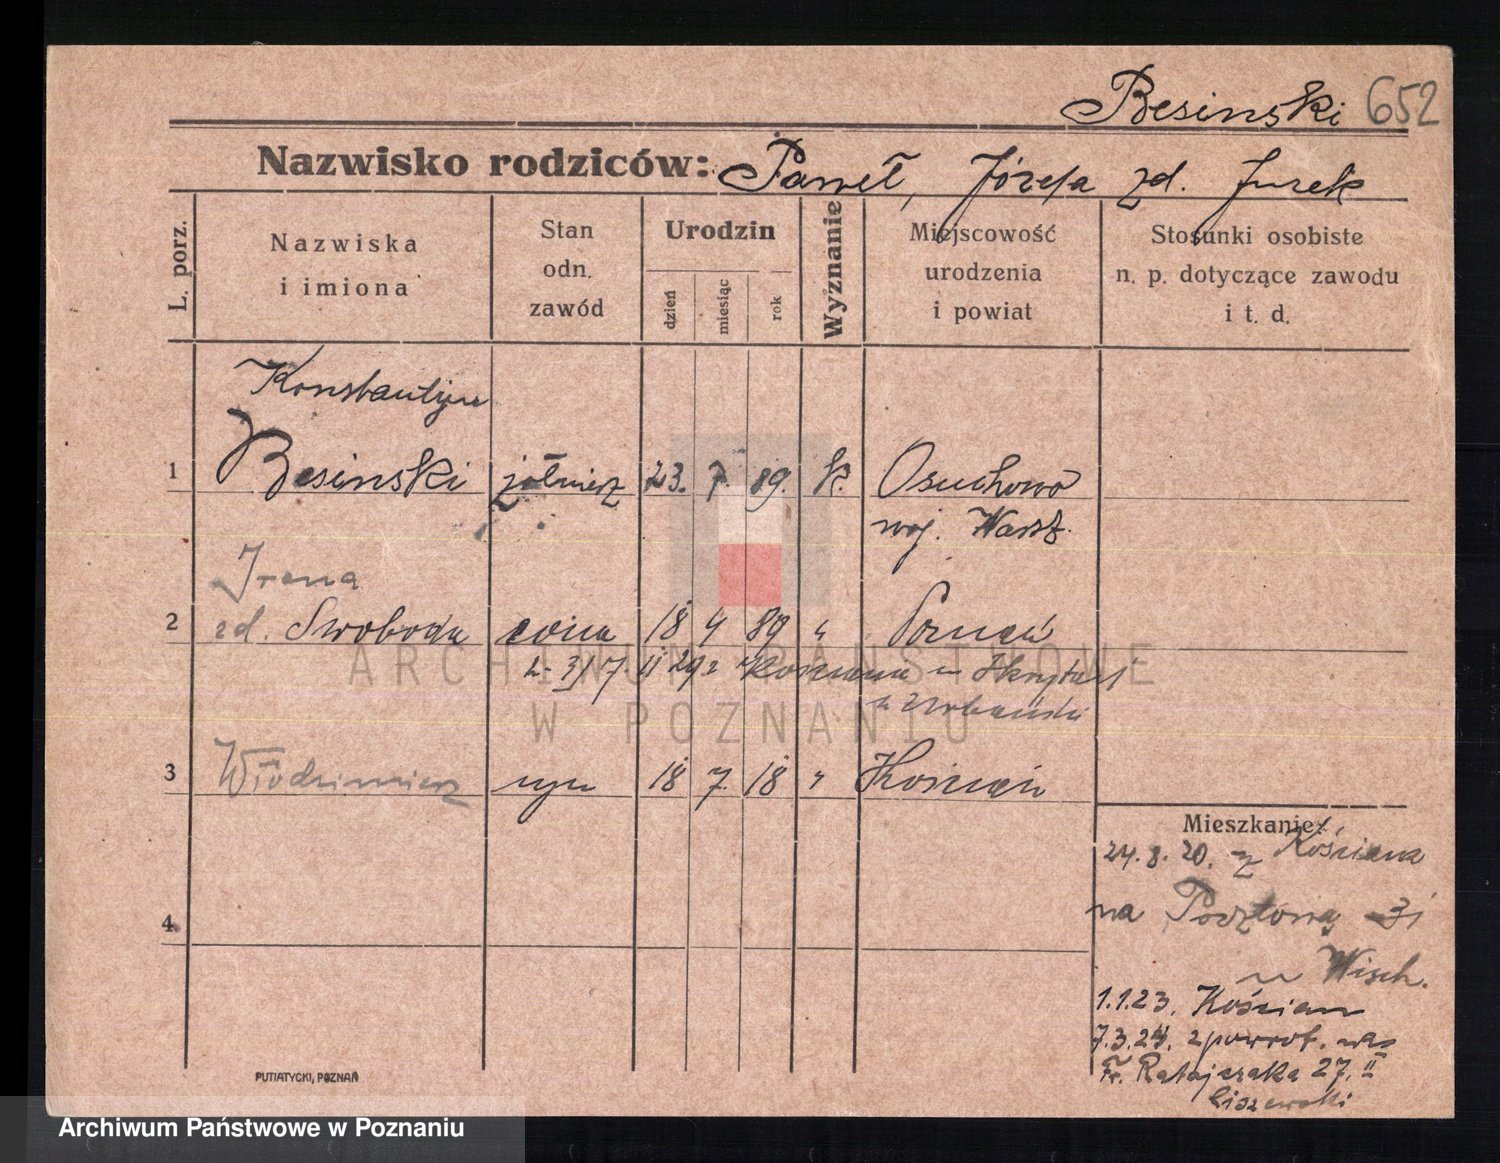 Besinski 652
Nazwisko rodziców: Paweł, Józefa zd. Jurek
L. porz.
Nazwiska
i imiona
Stan
odn.
zawód
Urodzin
dzień
miesiąc
rok
Wyznanie
Miejscowość
urodzenia
i powiat
Stosunki osobiste
n. p. dotyczące zawodu
i t. d.
Konstantyn
1 Besinski żołnierz 23. 7. 89. k. Osuchowo
woj. Warsz.
Irena
2 zd. Swoboda żona 18 4 89 " Poznań
29 Kościana
3 Włodzimierz syn 18 7 18 " Kościan
4
Mieszkanie:
24.8.20. z Kościana
na Pocztową 31
u Wisch.
1.1.23. Kościan
7.3.24. zpowrot.
Fr. Ratajczaka 27. II
Ciszewski
PUTIATYCKI, POZNAŃ
ARCHIWUM PAŃSTWOWE
W POZNANIU
Archiwum Państwowe w Poznaniu